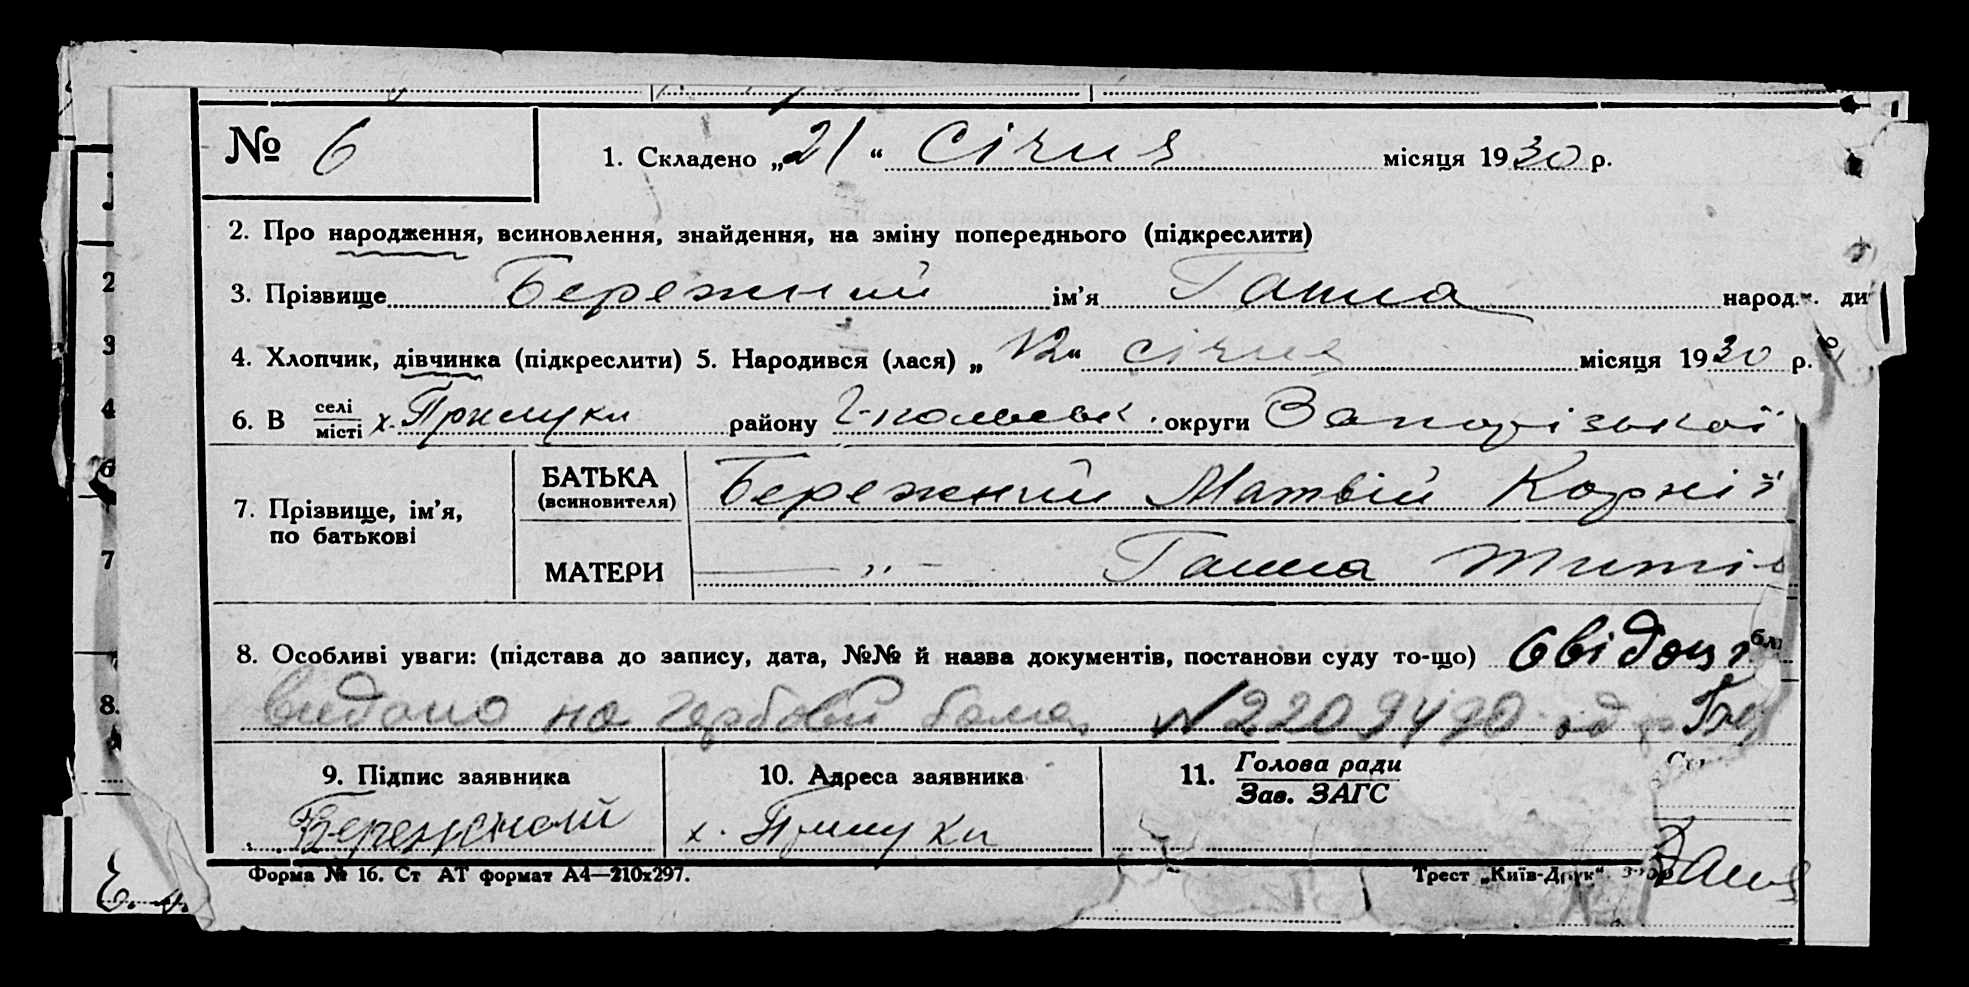 № 6 1. Складено „21“ Січня місяця 1930 р.
2. Про народження, всиновлення, знайдення, на зміну попереднього (підкреслити)
3. Прізвище Бережний ім’я Ганна народ. ди
4. Хлопчик, дівчинка (підкреслити) 5. Народився (лася) „12“ січня місяця 1930 р.
6. В селі/місті х. Прилуки району округи Запорізької
7. Прізвище, ім’я, по батькові
БАТЬКА (всиновителя) Бережний Матвій Корній
МАТЕРИ — „ — Ганна
8. Особливі уваги: (підстава до запису, дата, №№ й назва документів, постанови суду то-що)
видано на гербовій N 2209490 од
9. Підпис заявника 10. Адреса заявника 11. Голова ради/Зав. ЗАГС
Бережной х. Прилуки
Форма № 16. Ст АТ формат А4—210х297. Трест „Київ-Друк“
2
3
4
6
7
8.